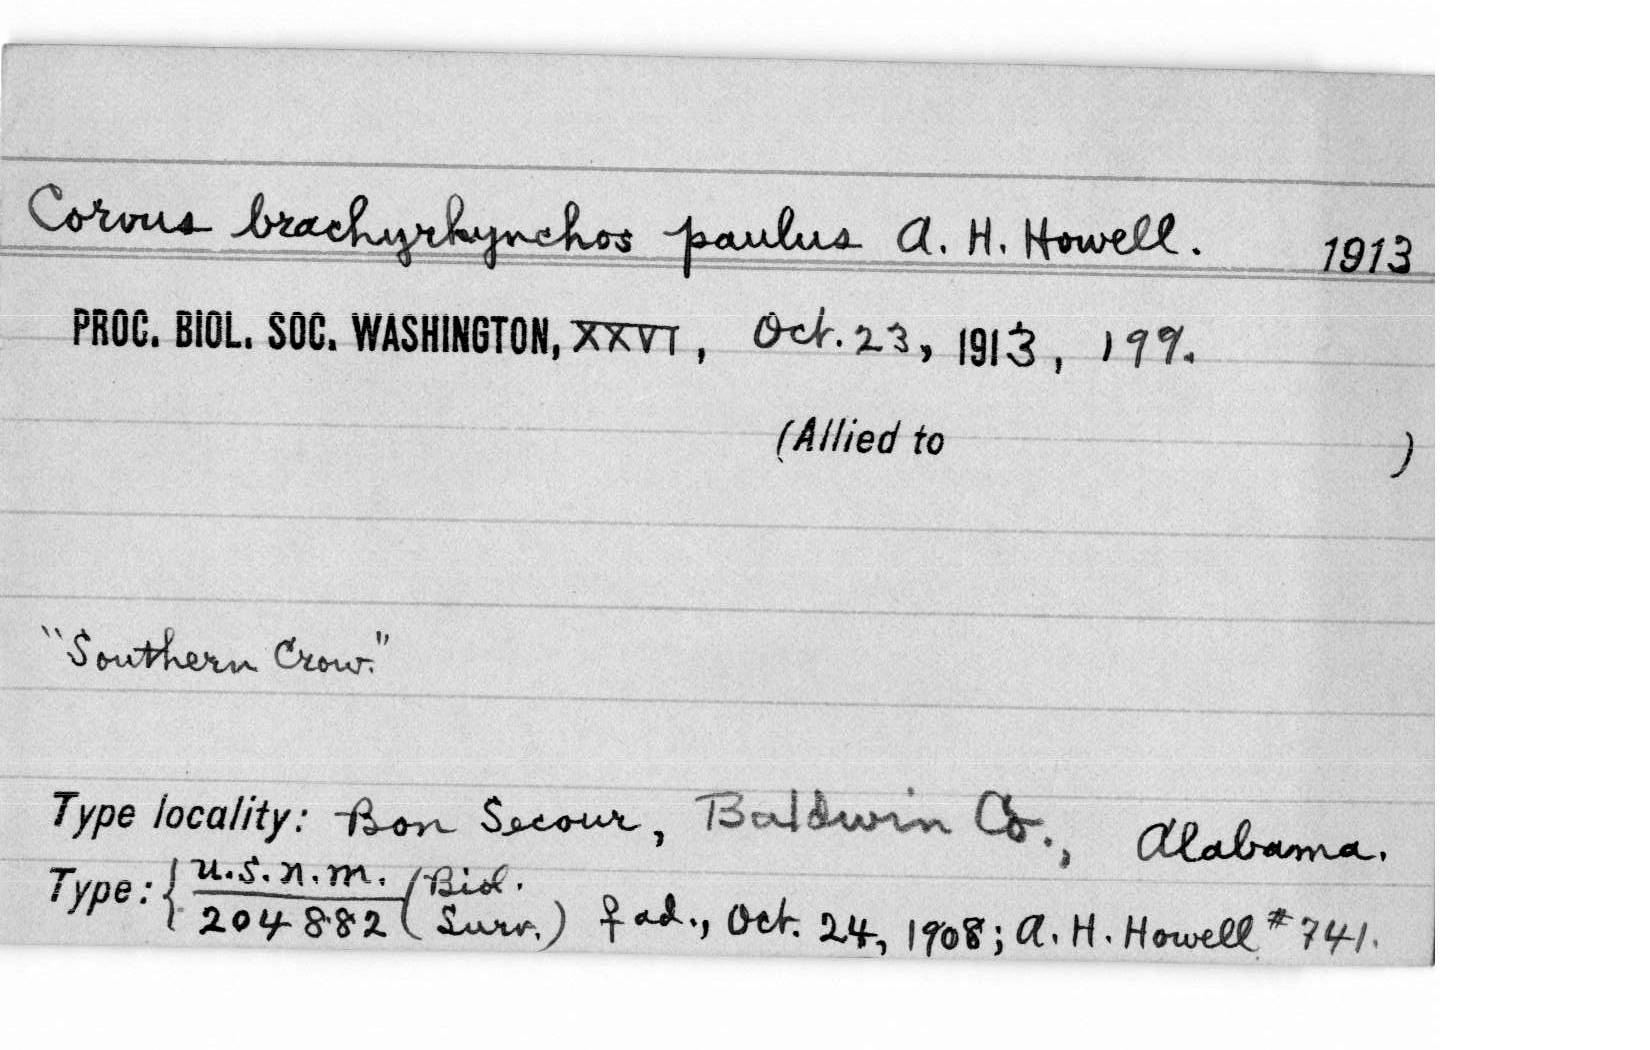 Corvus brachyrhynchos paulus A. H. Howell. 1913
PROC. BIOL. SOC. WASHINGTON, XXVI, Oct. 23, 1913, 199.
(Allied to )
"Southern Crow."
Type locality: Bon Secour, Baldwin Co., Alabama.
Type: { U.S.N.M. (Biol.
204882 Surv.) ♀ ad., Oct. 24, 1908; A. H. Howell #741.